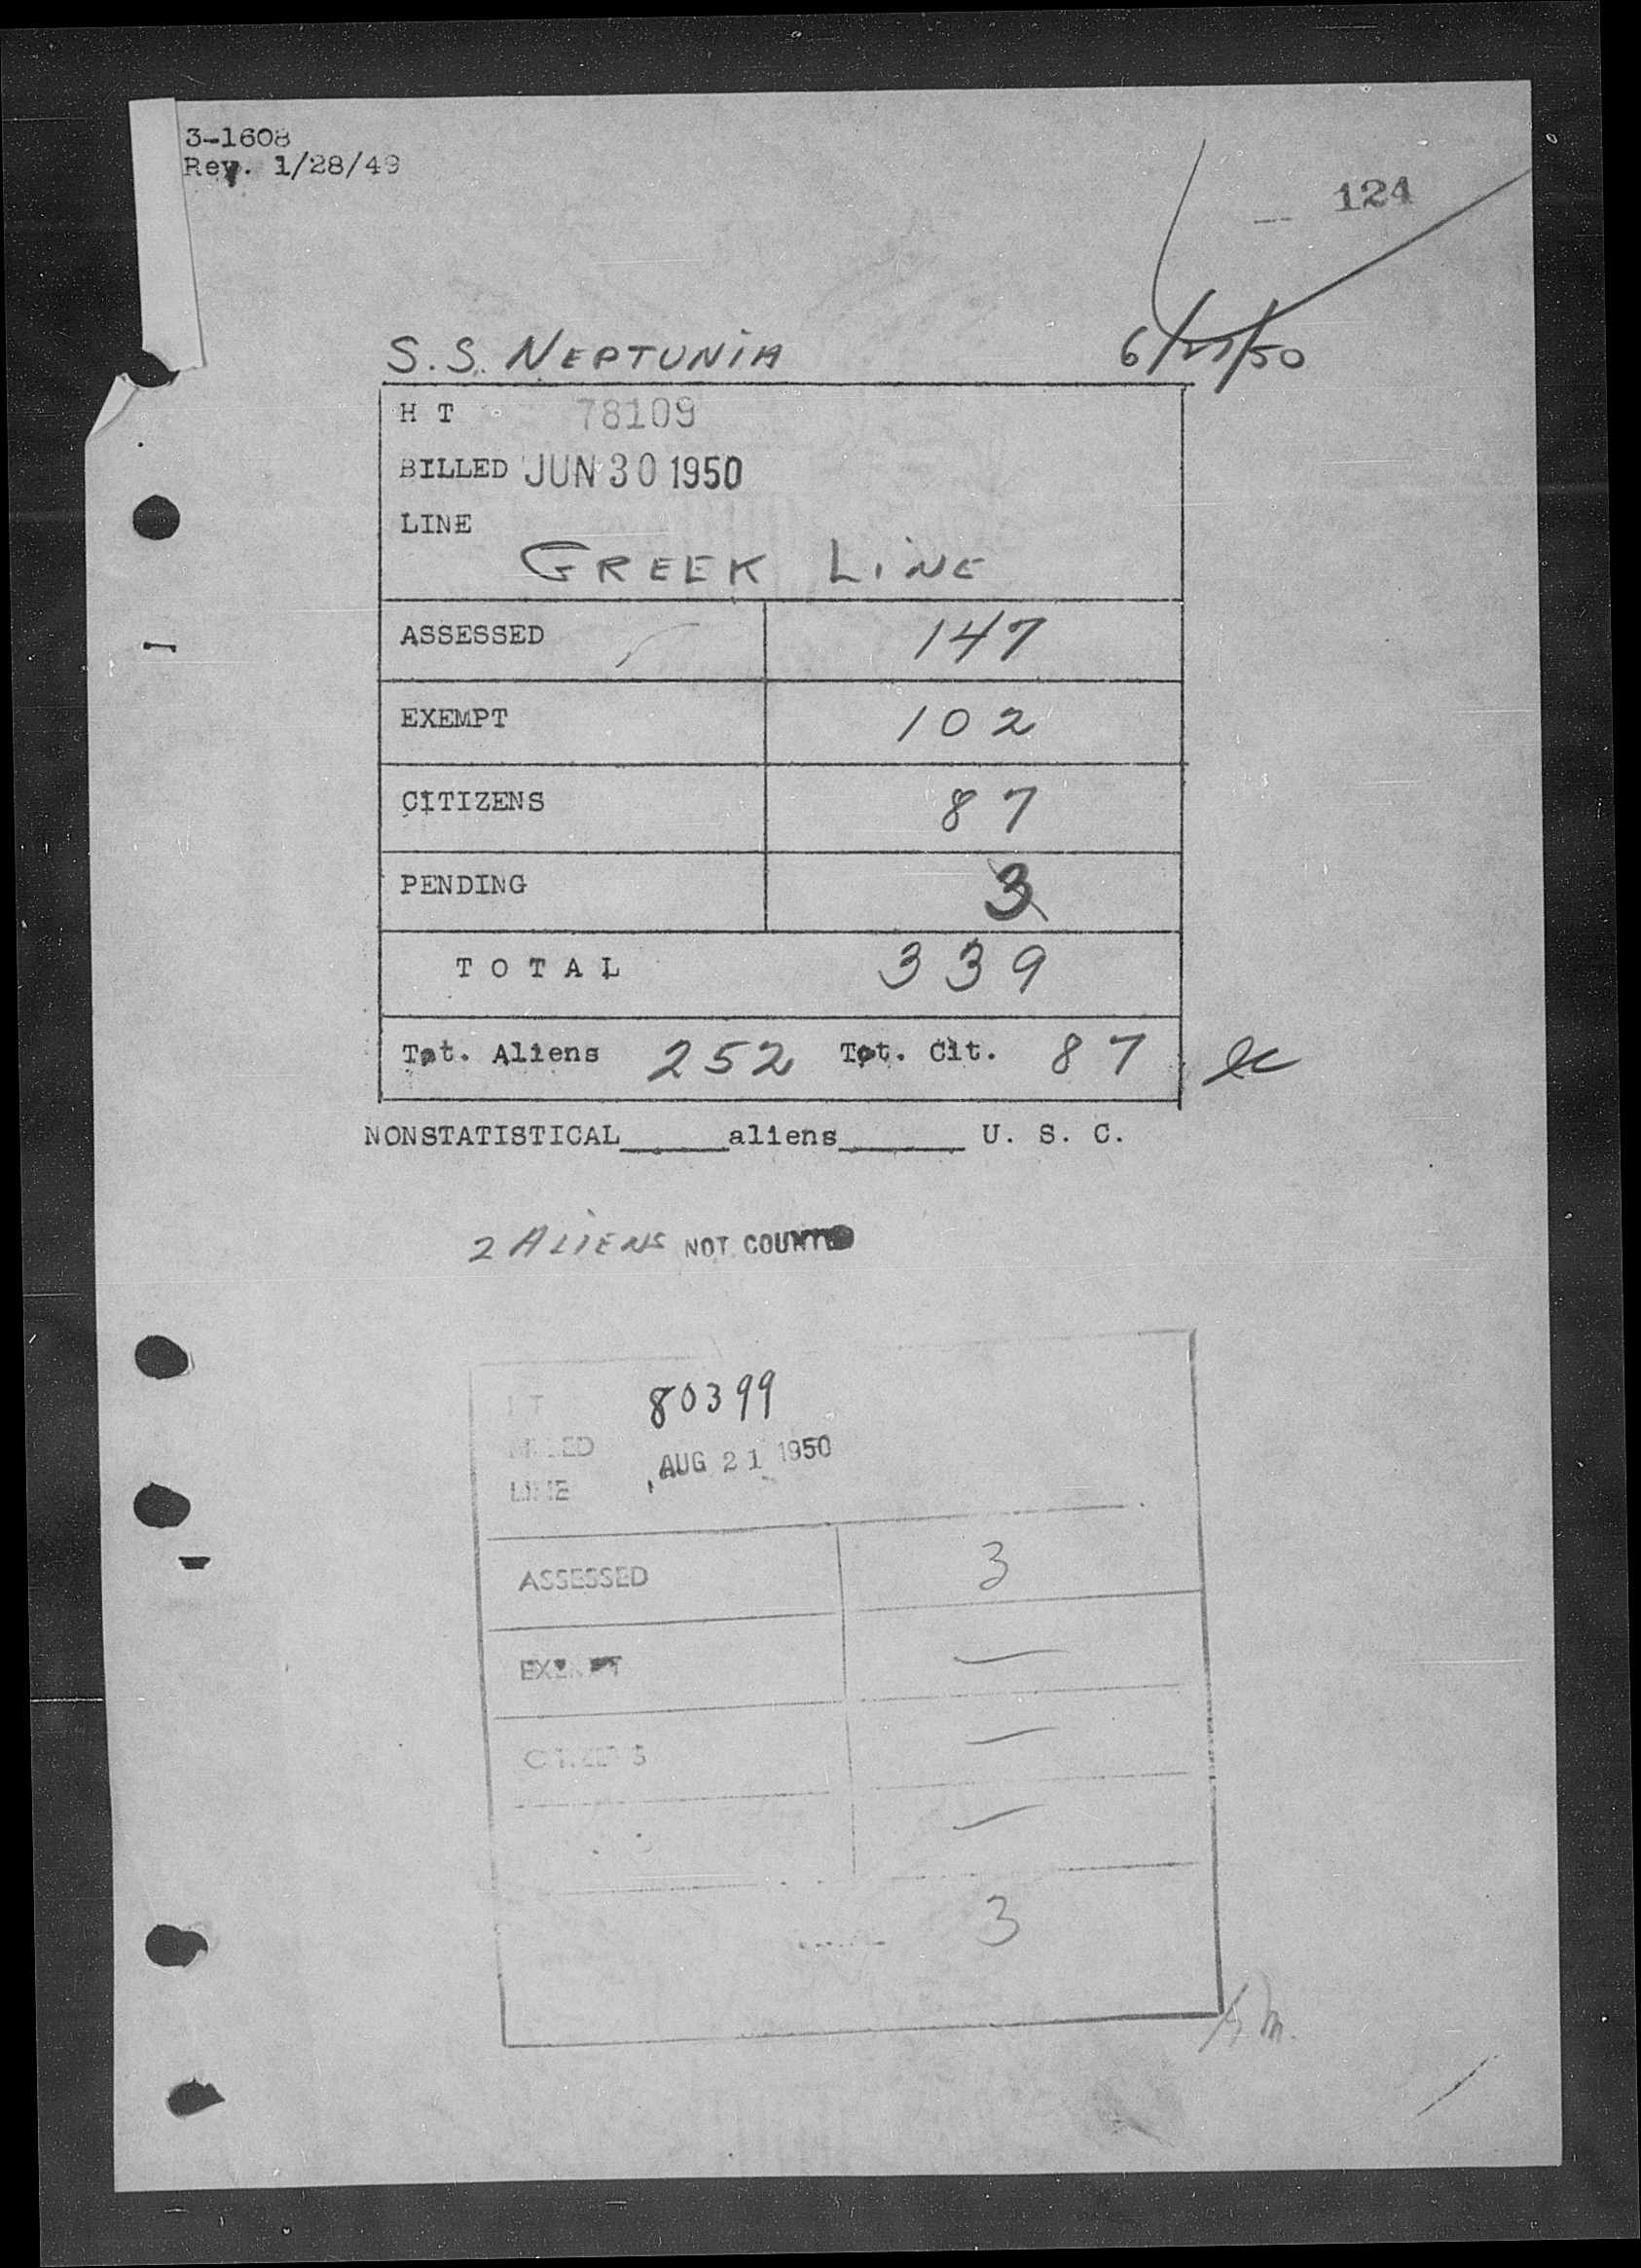 3-1608
Rev. 1/28/49
124
S.S. NEPTUNIA
H T 78109
BILLED JUN 30 1950
LINE
GREEK LINE
ASSESSED 147
EXEMPT 102
CITIZENS 87
PENDING 3
T O T A L 339
Tot. Aliens 252 Tot. Cit. 87
NONSTATISTICAL______aliens_______ U. S. C.
2 ALIENS NOT COUNTED
80399
AUG 21 1950
LINE
ASSESSED 3
EXEMPT —
—
—
3